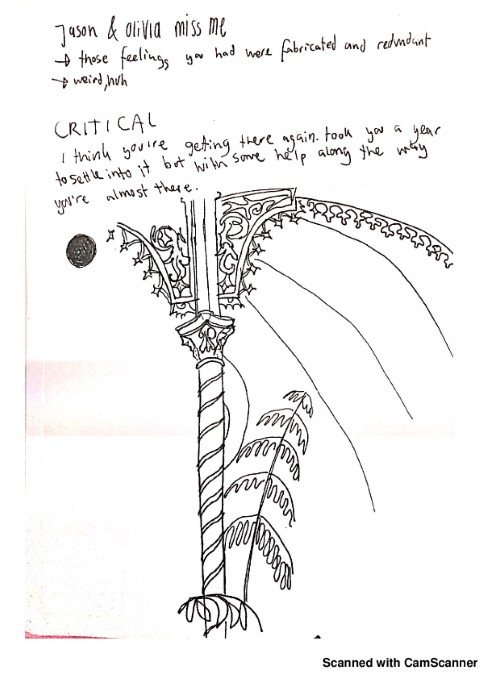 Jason & Olivia miss me
→ those feelings you had were fabricated and redundant
→ weird, huh
CRITICAL
I think you're getting there again. took you a year
to settle into it but with some help along the way
you're almost there.
Scanned with CamScanner